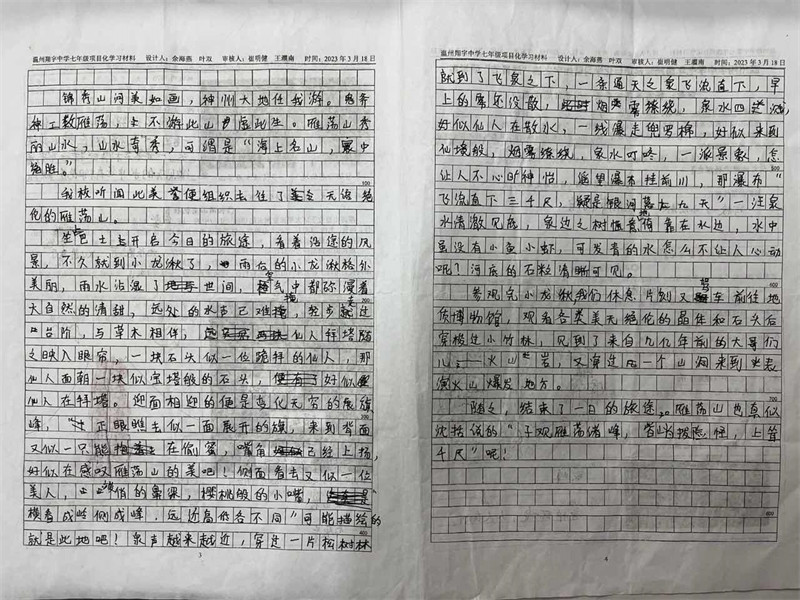 温州翔宇中学七年级项目化学习材料 设计人：余海燕 叶双 审核人：崔明健 王灌南 时间：2023年3月18日
锦秀山河美如画，神州大地任我游。鬼斧
神工数雁荡，不游此山虚此生。雁荡山秀
丽山水，山水奇秀，可谓是“海上名山，寰中
绝胜。”
我校听闻此美誉便组织去往了美无伦
伦的雁荡山。
坐上巴士开启今日的旅途，看着沿途的风
景，不久就到小龙湫了，雨后的小龙湫格外
美丽，雨水沾湿了世间，空气中都弥漫着
大自然的清甜，远处的水声已难掩，走过
台阶，与草木相伴，仙人拜塔随
之映入眼帘，一块石头似一位跪拜的仙人，那
仙人面朝一块似宝塔般的石头，好似
仙人在拜塔。迎面相迎的便是变化无穷的展旗
峰，正眼瞧去似一面展开的旗，来到背面
又似一只能在偷蜜，嘴角已经上扬，
好似在感叹雁荡山的美吧！侧面看去又似一位
美人，俏的鼻梁，樱桃般的小嘴，
横看成岭侧成峰，远近高低各不同”可能描绘的
就是此地吧！泉声越来越近，穿过一片松树林
3
温州翔宇中学七年级项目化学习材料 设计人：余海燕 叶双 审核人：崔明健 王灌南 时间：2023年3月18日
就到了飞泉之下，一条通天之泉飞流直下，早
上的雾还没散，烟雾缭绕，泉水四溅，
好似仙人在散水，一线瀑走兜罗棉，好似来到
仙境般，烟雾缭绕，泉水叮咚，一派景象，怎
让人不心旷神怡，遥望瀑布挂前川，那瀑布“
飞流直下三千尺，疑是银河落九天”一注泉
水清澈见底，泉边之树慵着地倚靠在水边，水中
虽没有小鱼小虾，可发青的水怎么不让人心动
呢？河底的石粒清晰可见。
参观完小龙湫我们休息片刻又驾车前往地
质博物馆，观看各类美无绝伦的晶体和石头后
穿梭过小竹林，见到了来自九亿年前的大哥们
儿——火山岩，又穿过后一个山洞来到
火山爆发地方。
随之，结束了一日的旅途。雁荡山也真似
沈括说的“予观雁荡诸峰，皆峭拔险怪，上耸
千尺”呢！
4